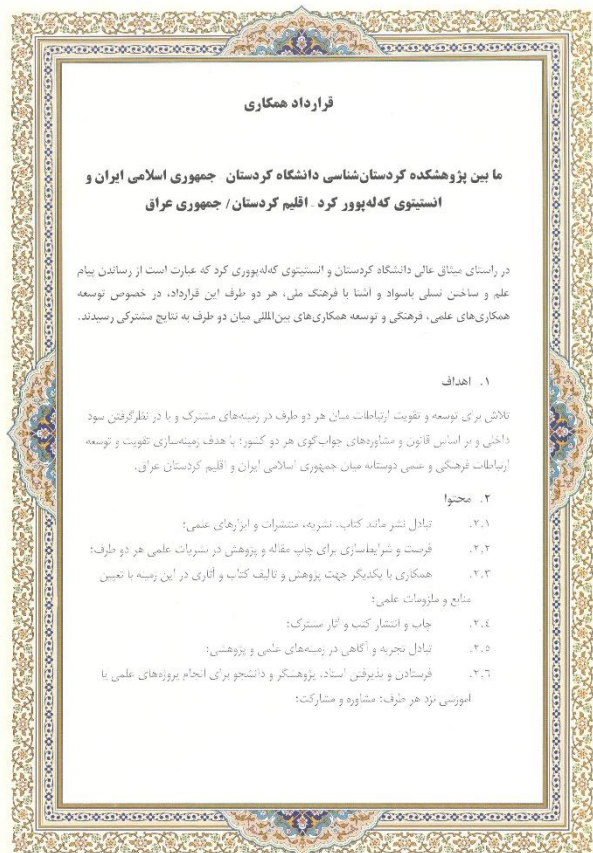 قرارداد همکاری
ما بین پژوهشکده کردستان‌شناسی دانشگاه کردستان جمهوری اسلامی ایران و
انستیتوی که‌له‌پوور کرد _ اقلیم کردستان / جمهوری عراق
در راستای میثاق عالی دانشگاه کردستان و انستیتوی که‌له‌پووری کرد که عبارت است از رساندن پیام
علم و ساختن نسلی باسواد و آشنا با فرهنگ ملی، هر دو طرف این قرارداد، در خصوص توسعه
همکاری‌های علمی، فرهنگی و توسعه همکاری‌های بین‌المللی میان دو طرف به نتایج مشترکی رسیدند.
۱. اهداف
تلاش برای توسعه و تقویت ارتباطات میان هر دو طرف در زمینه‌های مشترک و با در نظرگرفتن سود
داخلی و بر اساس قانون و مشاوره‌های جوابگوی هر دو کشور؛ با هدف زمینه‌سازی تقویت و توسعه
ارتباطات فرهنگی و علمی دوستانه میان جمهوری اسلامی ایران و اقلیم کردستان عراق.
۲. محتوا
۲.۱. تبادل نشر مانند کتاب، نشریه، منتشرات و ابزارهای علمی؛
۲.۲. فرصت و شرایط‌سازی برای چاپ مقاله و پژوهش در نشریات علمی هر دو طرف؛
۲.۳. همکاری با یکدیگر جهت پژوهش و تالیف کتاب و آثاری در این زمینه با تعیین
منابع و ملزومات علمی؛
۲.٤. چاپ و انتشار کتب و آثار مشترک؛
۲.٥. تبادل تجربه و آگاهی در زمینه‌های علمی و پژوهشی؛
۲.٦. فرستادن و پذیرفتن استاد، پژوهشگر و دانشجو برای انجام پروژه‌های علمی یا
آموزشی نزد هر طرف؛ مشاوره و مشارکت؛